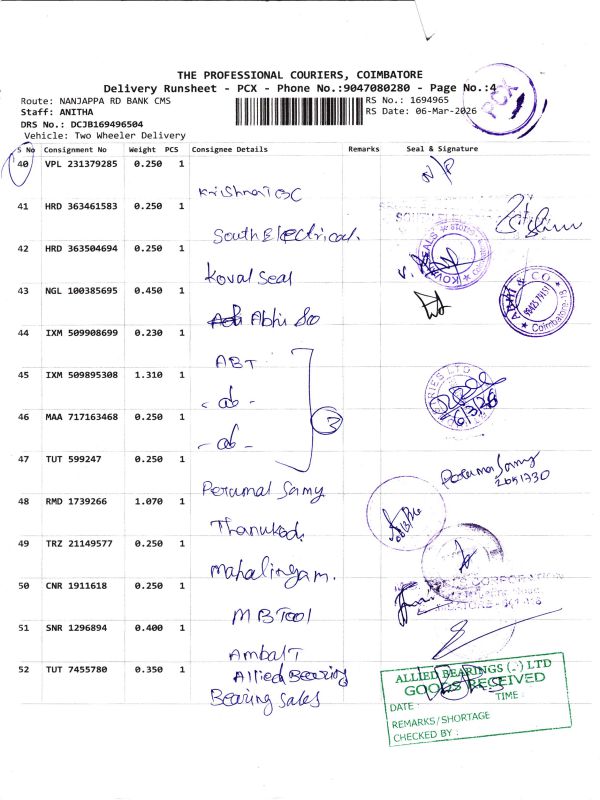 THE PROFESSIONAL COURIERS, COIMBATORE
Delivery Runsheet - PCX - Phone No.:9047080280 - Page No.:4
PCX
Route: NANJAPPA RD BANK CMS
RS No.: 1694965
Staff: ANITHA
RS Date: 06-Mar-2026
DRS No.: DCJB169496504
Vehicle: Two Wheeler Delivery
S No Consignment No Weight PCS Consignee Details Remarks Seal & Signature
40 VPL 231379285 0.250 1
N/P
41 HRD 363461583 0.250 1
South Electrical.
42 HRD 363504694 0.250 1
Koval Seal
43 NGL 100385695 0.450 1
Abhi &o
ABHI & CO
Coimbatore-18
44 IXM 509908699 0.230 1
ABT
45 IXM 509895308 1.310 1
- do -
3
6/3/26
46 MAA 717163468 0.250 1
- do -
47 TUT 599247 0.250 1
Perumal Samy
Perumal Samy
48 RMD 1739266 1.070 1
49 TRZ 21149577 0.250 1
Mahalingam.
CORPORATION
50 CNR 1911618 0.250 1
MB Tool
51 SNR 1296894 0.400 1
Ambal T
52 TUT 7455780 0.350 1
Allied Bearing
Bearing Sales
ALLIED BEARINGS (.) LTD
GOODS RECEIVED
DATE : TIME :
REMARKS/SHORTAGE
CHECKED BY :